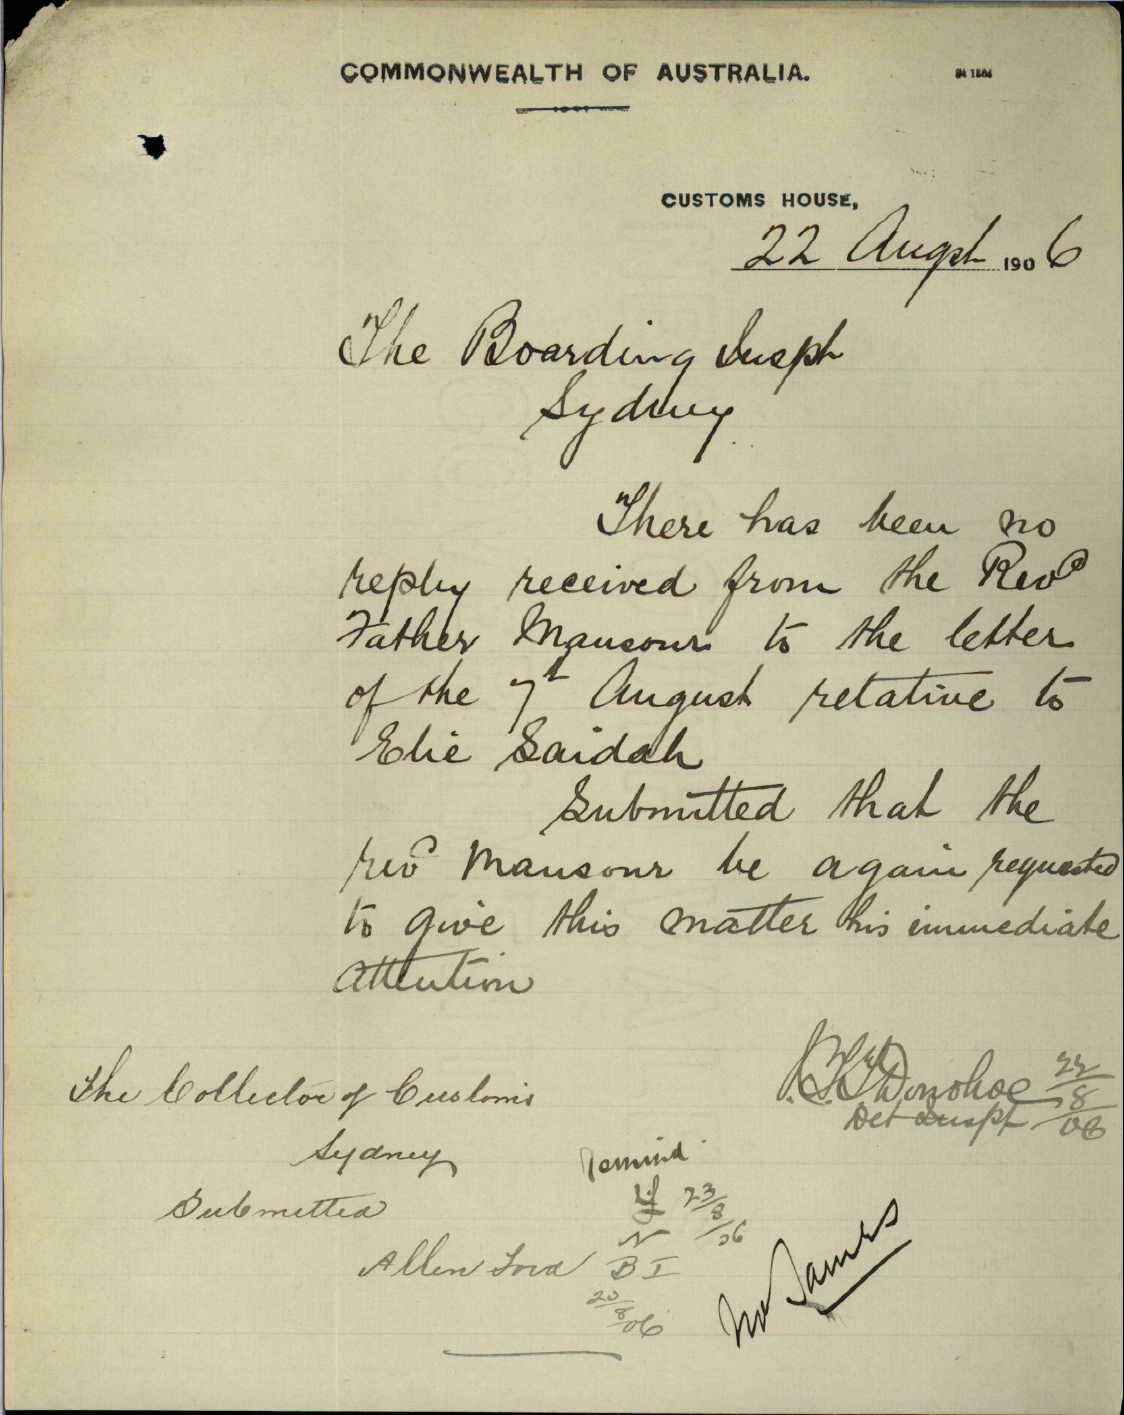 COMMONWEALTH OF AUSTRALIA.
CUSTOMS HOUSE,
22 Augst 1906
The Boarding Inspt
Sydney
There has been no
reply received from the Revd
Father Mansour to the letter
of the 7t August relative to
Elie Saidah
Submitted that the
revd Mansour be again requested
to give this matter his immediate
attention
Donohoe 22/8/06
Det Inspt
The Collector of Customs
Sydney
Submitted
Remind
23/8/06
Allen Ford B I
Mr James